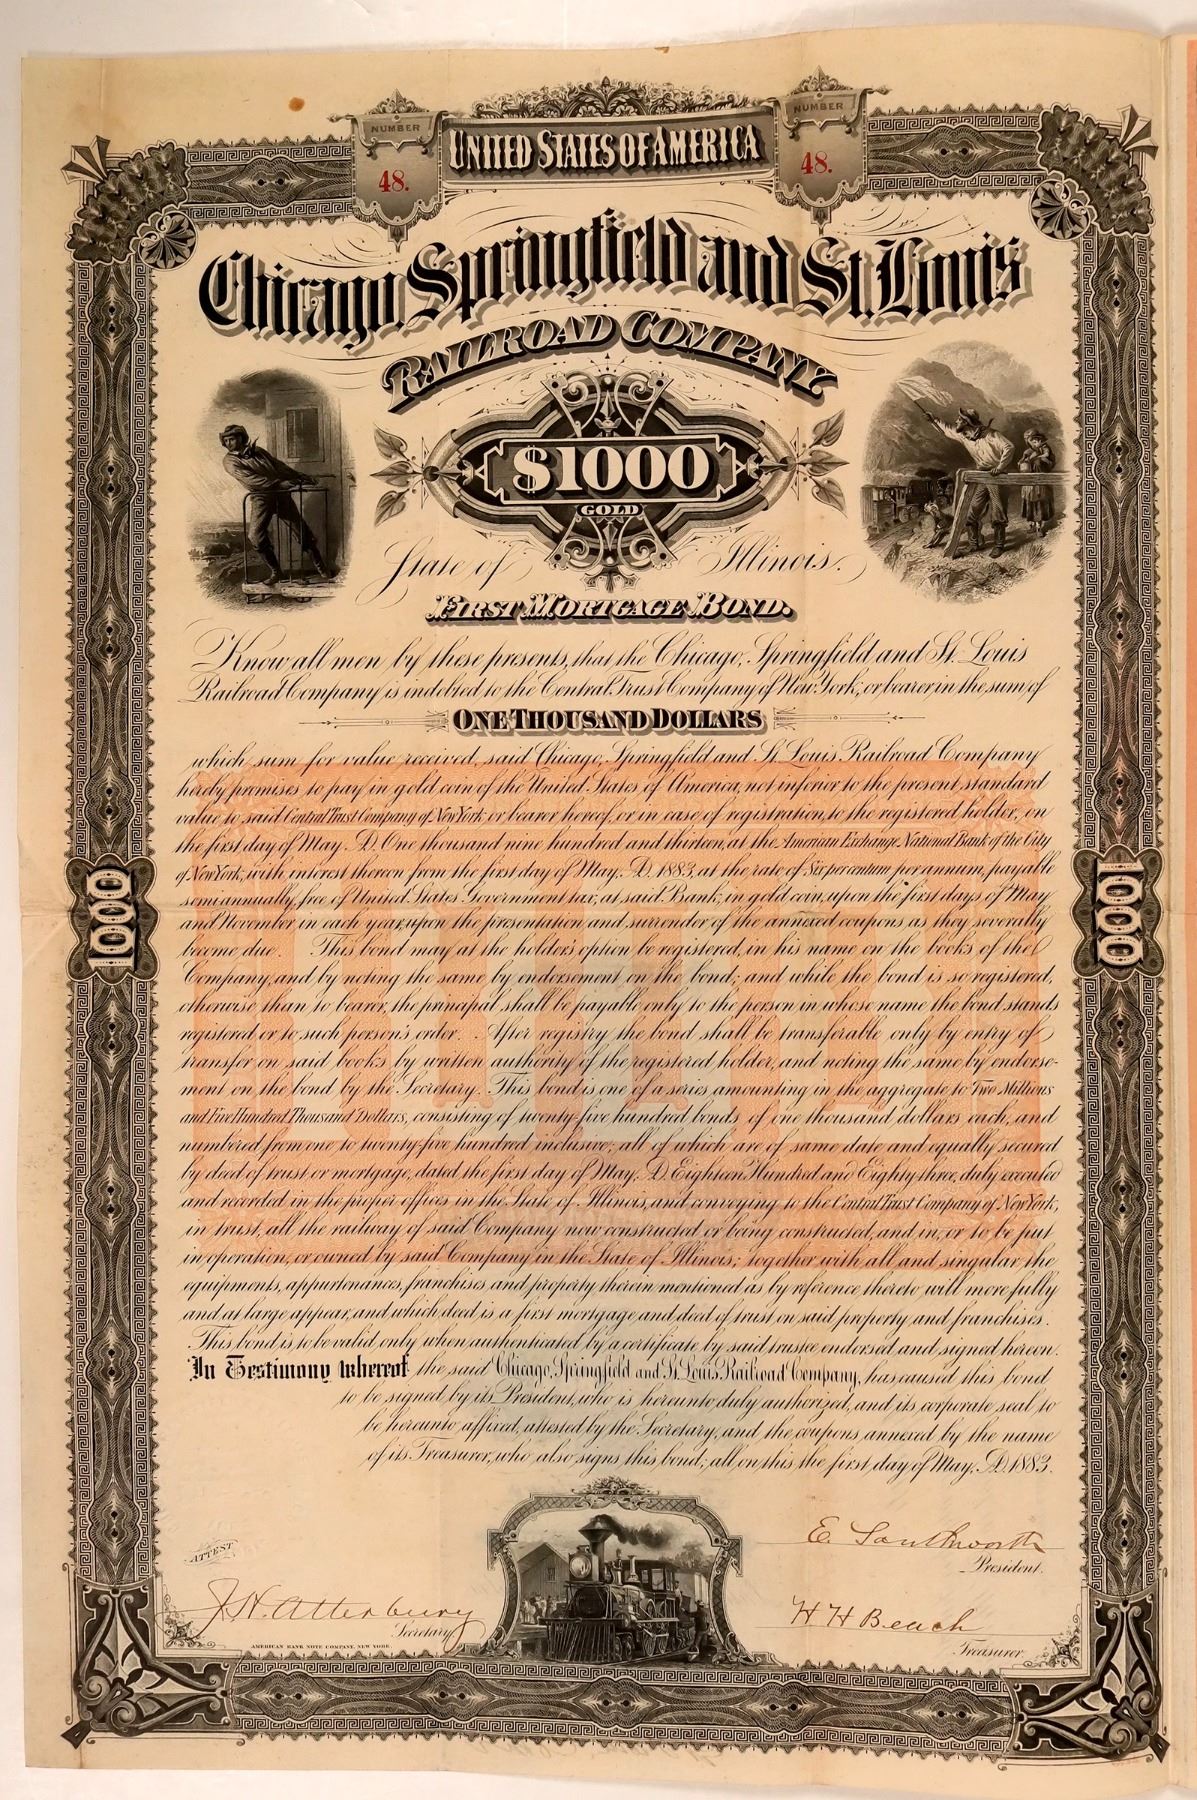 NUMBER
48.
UNITED STATES OF AMERICA
NUMBER
48.
Chicago, Springfield and St. Louis
RAILROAD COMPANY
$1000
GOLD
State of Illinois.
FIRST MORTGAGE BOND.
Know all men by these presents, that the Chicago, Springfield and St. Louis
Railroad Company is indebted to the Central Trust Company of New York, or bearer in the sum of
ONE THOUSAND DOLLARS
which sum for value received, said Chicago, Springfield and St. Louis Railroad Company
hereby promises to pay in gold coin of the United States of America, not inferior to the present standard
value to said Central Trust Company of New York or bearer hereof, or in case of registration, to the registered holder, on
the first day of May A.D. One thousand nine hundred and thirteen, at the American Exchange National Bank of the City
of New York, with interest thereon from the first day of May, A.D. 1883, at the rate of Six per centum per annum, payable
semiannually, free of United States Government tax, at said Bank, in gold coin, upon the first days of May
and November in each year, upon the presentation and surrender of the annexed coupons as they severally
become due. This bond may at the holder's option be registered, in his name on the books of the
Company, and by noting the same by endorsement on the bond; and while the bond is so registered,
otherwise than to bearer, the principal shall be payable only to the person in whose name the bond stands
registered or to such person's order. After registry the bond shall be transferable only by entry of
transfer on said books by written authority of the registered holder, and noting the same by endorse-
ment on the bond by the Secretary. This bond is one of a series amounting in the aggregate to Two Millions
and Five Hundred Thousand Dollars, consisting of twenty-five hundred bonds of one thousand dollars each, and
numbered from one to twenty-five hundred inclusive; all of which are of same date and equally secured
by deed of trust or mortgage, dated the first day of May, A.D. Eighteen Hundred and Eighty-three, duly executed
and recorded in the proper offices in the State of Illinois, and conveying to the Central Trust Company of New York,
in trust, all the railway of said Company now constructed or being constructed, and in, or to be put
in operation, or owned by said Company in the State of Illinois; together with all and singular, the
equipments, appurtenances, franchises and property therein mentioned as by reference thereto will more fully
and at large appear, and which deed is a first mortgage and deed of trust on said property and franchises.
This bond is to be valid only when authenticated by a certificate by said trustee endorsed and signed hereon.
In Testimony Whereof the said Chicago, Springfield and St. Louis Railroad Company, has caused this bond
to be signed by its President, who is hereunto duly authorized, and its corporate seal to
be hereunto affixed, attested by the Secretary, and the coupons annexed by the name
of its Treasurer, who also signs this bond; all on this the first day of May, A.D. 1883.
1000
1000
E. Southworth
President.
ATTEST
J. H. Atterbury
Secretary.
H H Beach
Treasurer.
AMERICAN BANK NOTE COMPANY, NEW YORK.